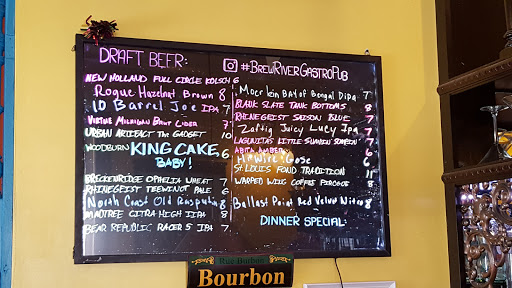 DRAFT BEER:
#BREWRIVERGASTROPUB
NEW HOLLAND FULL CIRCLE KOLSCH 6
Rogue Hazelnut Brown 8
10 Barrel Joe IPA 7
VIRTUE MICHIGAN BRUT CIDER 7
URBAN ARTIFACT THE GADGET 10
WOODBURN KING CAKE, 6
BABY!
BRECKENRIDGE OPHELIA WHEAT 7
RHINEGEIST PALE 6
North Coast Old Rasputin 8
MADTREE CITRA HIGH IIPA 8
BEAR REPUBLIC RACER 5 IPA 7
Moerlein BAY of Bengal Dipa 7
BLANK SLATE TANK BOTTOMS 8
RHINEGEIST SAISON BLUE 7
Zaftig Juicy Lucy Ipa 7
LAGUNITAS LITTLE SUMPIN SUMPIN 7
ABITA AMBER 6
Hi-Wire: Gose
ST. LOUIS FOND TRADITION
WARPED WING COFFEE PIROGUE 8
Ballast Point Red Velvet Nitro 8
DINNER SPECIAL:
Rue Bourbon
Bourbon